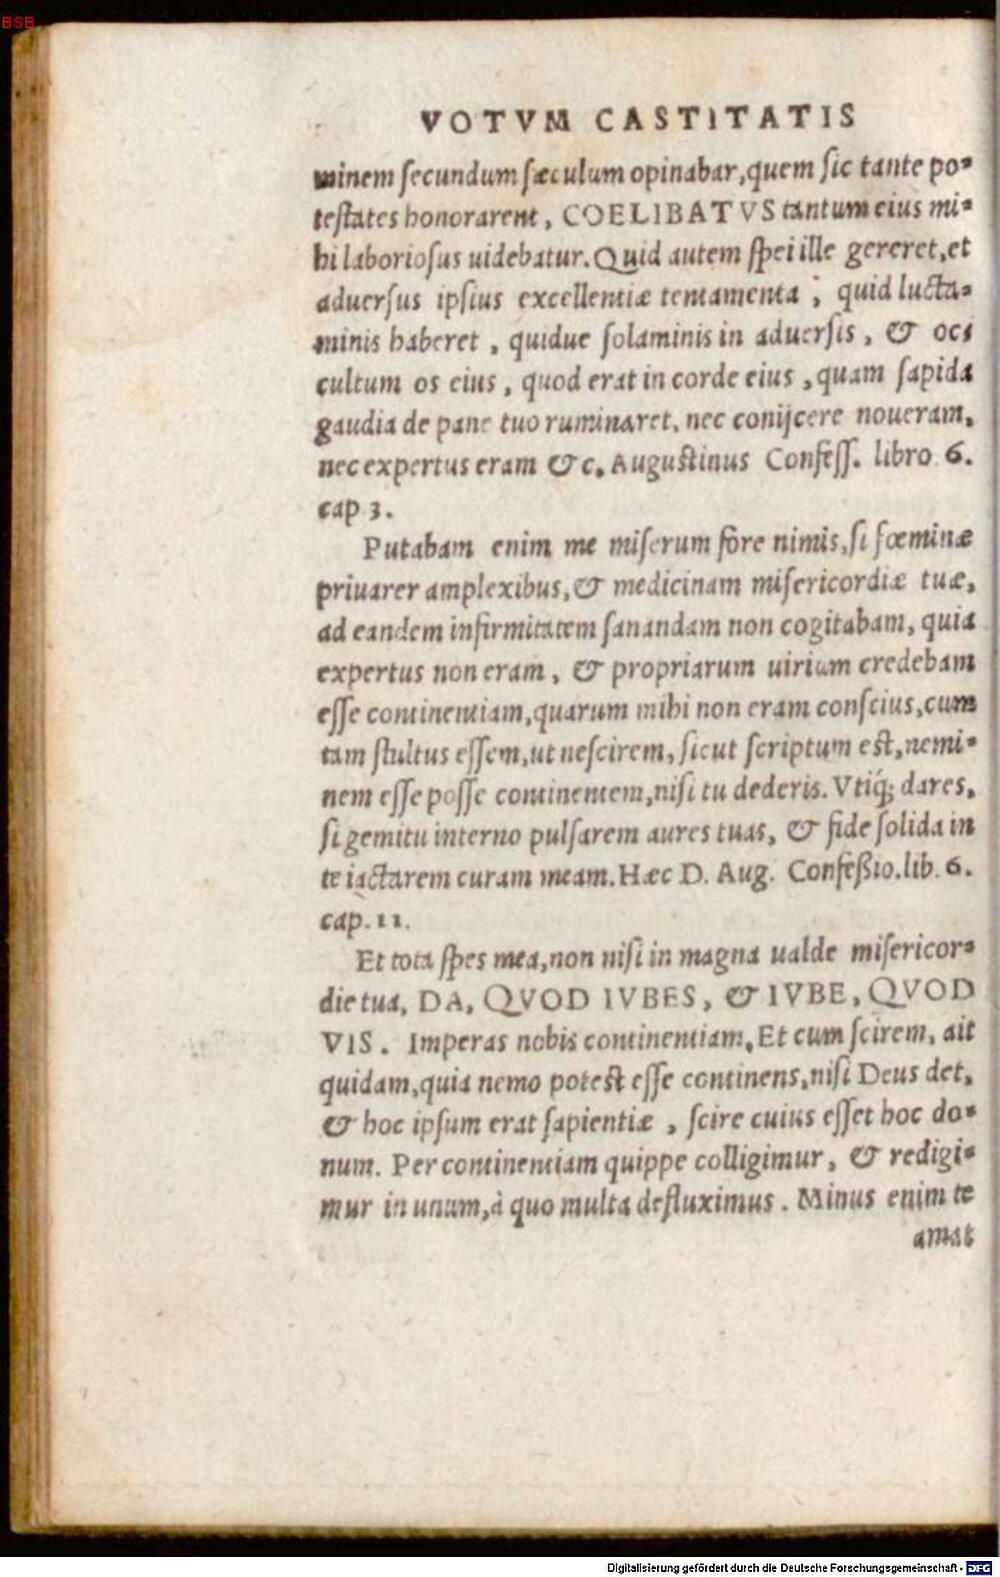 BSB
VOTVM CASTITATIS
minem secundum sæculum opinabar, quem sic tante po-
testates honorarent, COELIBATVS tantum eius mi-
hi laboriosus uidebatur. Quid autem spei ille gereret, et
aduersus ipsius excellentiæ tentamenta, quid lucta-
minis haberet, quidue solaminis in aduersis, & oc-
cultum os eius, quod erat in corde eius, quam sapida
gaudia de pane tuo ruminaret, nec conijcere noueram,
nec expertus eram &c. Augustinus Confess. libro 6.
cap 3.
Putabam enim me miserum fore nimis, si fœminæ
priuarer amplexibus, & medicinam misericordiæ tuæ,
ad eandem infirmitatem sanandam non cogitabam, quia
expertus non eram, & propriarum uirium credebam
esse continentiam, quarum mihi non eram conscius, cum
tam stultus essem, ut nescirem, sicut scriptum est, nemi-
nem esse posse continentem, nisi tu dederis. Vtiq; dares,
si gemitu interno pulsarem aures tuas, & fide solida in
te iactarem curam meam. Hæc D. Aug. Confeßio. lib. 6.
cap. 11.
Et tota spes mea, non nisi in magna ualde misericor-
die tua, DA, QVOD IVBES, & IVBE, QVOD
VIS. Imperas nobis continentiam. Et cum scirem, ait
quidam, quia nemo potest esse continens, nisi Deus det,
& hoc ipsum erat sapientiæ, scire cuius esset hoc do-
num. Per continentiam quippe colligimur, & redigi-
mur in unum, à quo multa defluximus. Minus enim te
amat
Digitalisierung gefördert durch die Deutsche Forschungsgemeinschaft - DFG